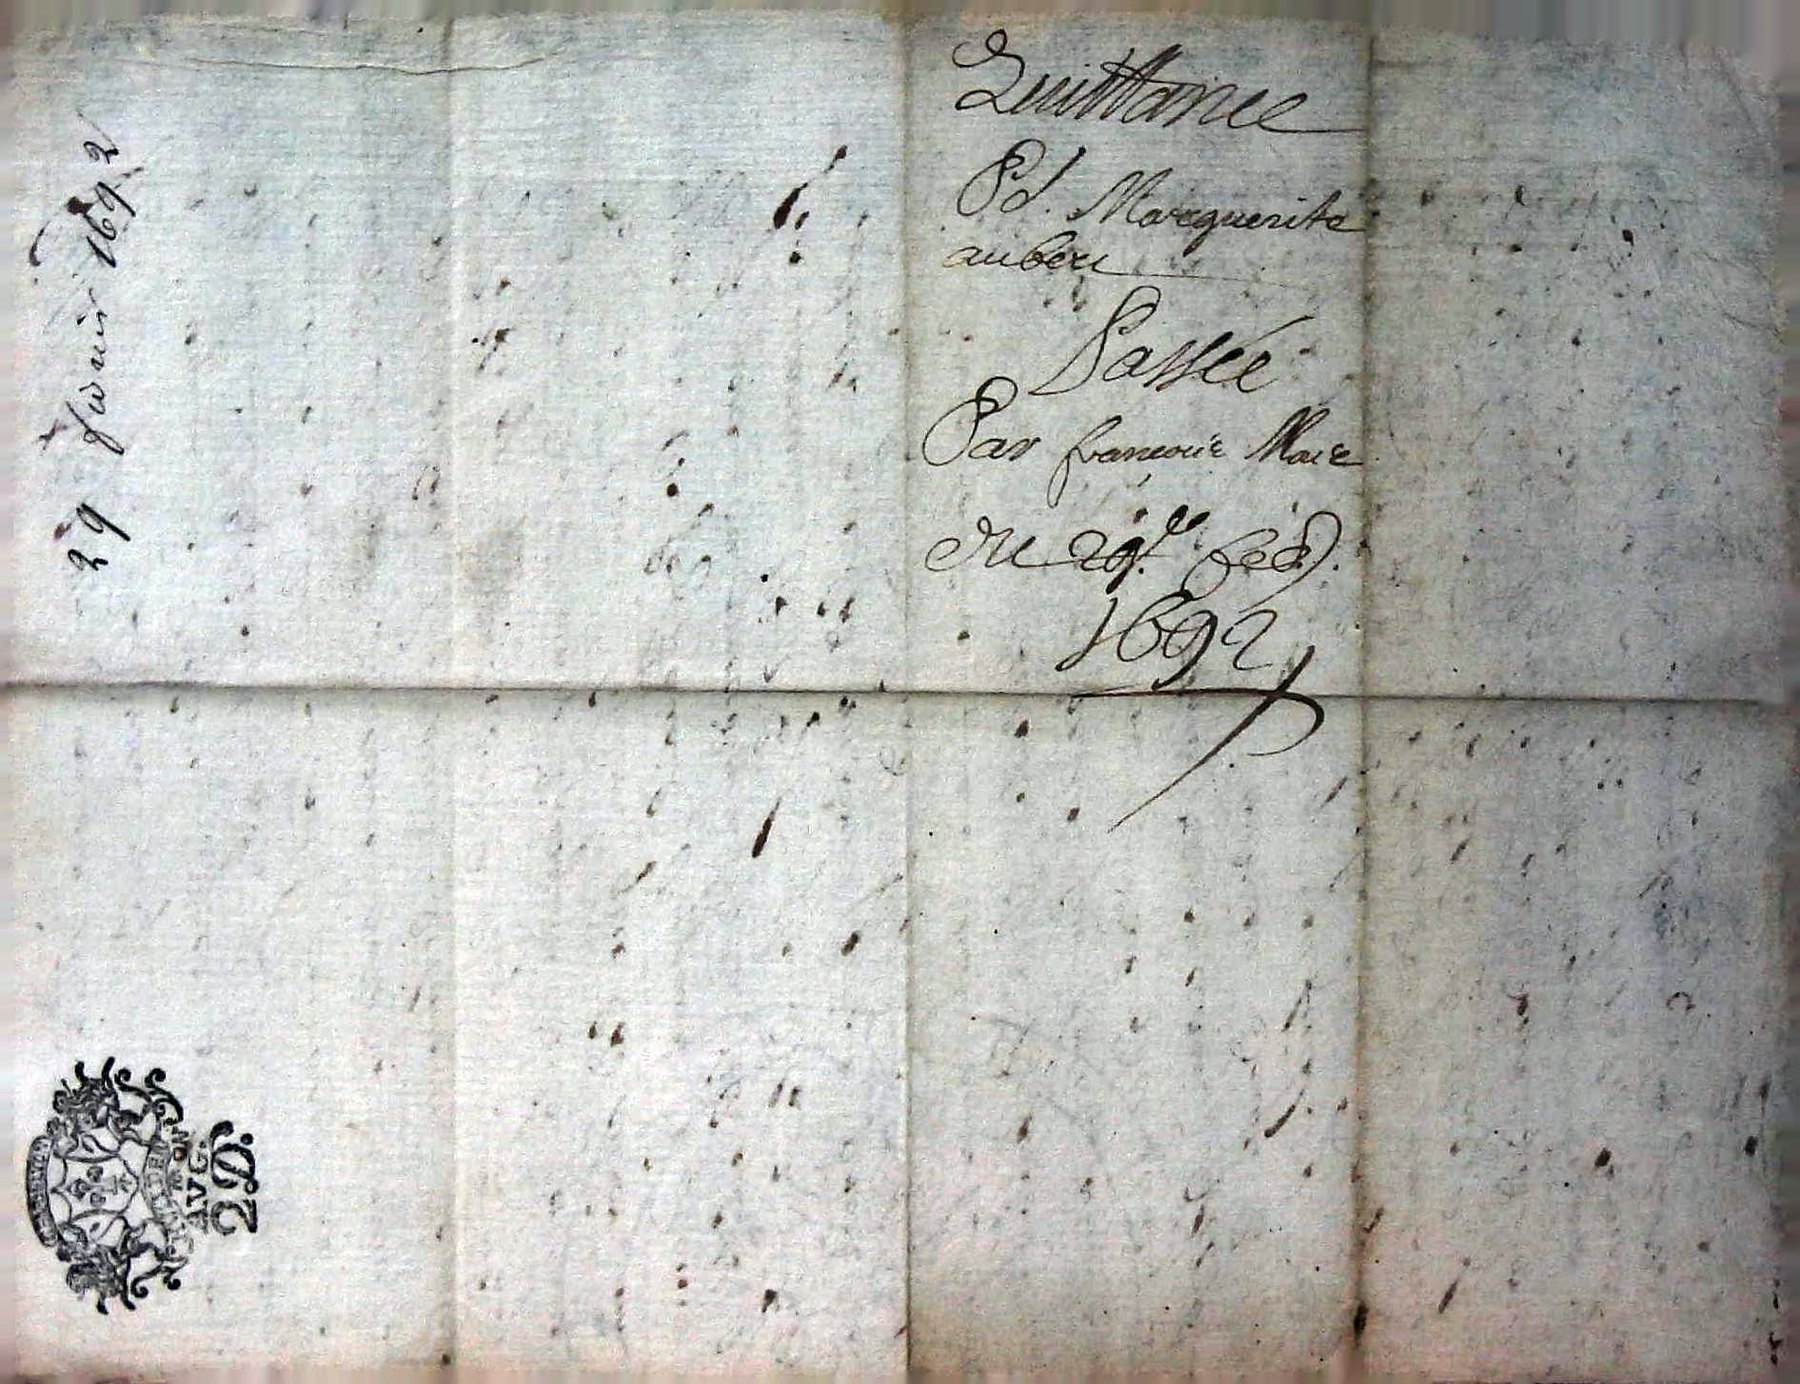 Quittance
Pd. Marguerite
auberi
Passée
Par francoise Moie
du 29.e feb.
1692
29 fevrier 1692
AVG.
2 D.